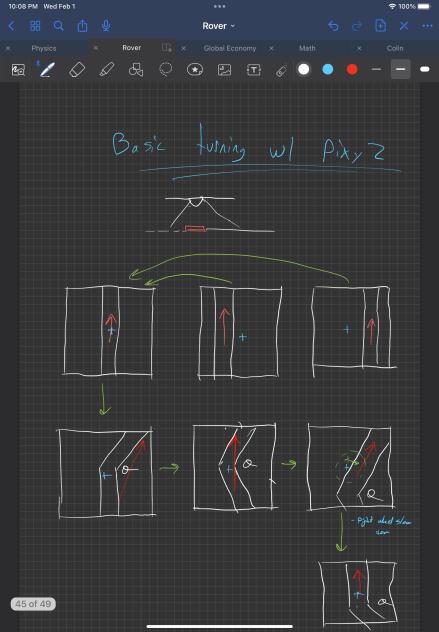 10:08 PM Wed Feb 1
100%
Rover
Physics
Rover
Global Economy
Math
Colin
Basic turning w/ Pixy 2
- Right wheel slow
45 of 49